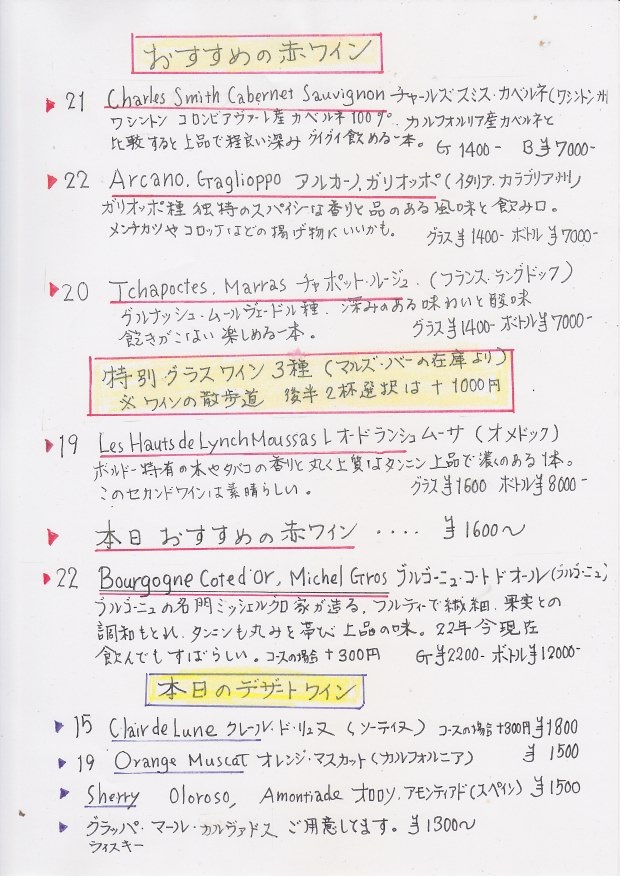 おすすめの赤ワイン
21 Charles Smith Cabernet Sauvignon チャールズスミス・カベルネ(ワシントン州
ワシントン コロンビアヴァレー産カベルネ100%. カルフォルリア産カベルネと
比較すると上品で程良い深み グイグイ飲める一本。 G 1400- B¥7000-
22 Arcano. Gaglioppo アルカーノ.ガリオッポ(イタリア.カラブリア州)
ガリオッポ種 独特のスパイシーな香りと品のある風味と飲み口。
メンチカツやコロッケなどの揚げ物にいいかも。 グラス¥1400- ボトル¥7000-
20 Tchapoctes. Marras チャポット・ルージュ. (フランス・ラングドック)
グルナッシュ・ムールヴェードル種. 深みのある味わいと酸味
飽きがこない楽しめる一本。 グラス¥1400- ボトル¥7000-
特別グラスワイン3種(マルズ・バーの在庫より)
※ワインの散歩道 後半2杯選択は+1000円
19 Les Hauts de Lynch Moussas レオードランシュムーサ (オメドック)
ボルドー特有の木やタバコの香りと丸く上質なタンニン上品で濃くのある1本。
このセカンドワインは素晴らしい。 グラス¥1600 ボトル¥8000-
本日おすすめの赤ワイン ‥‥ ¥1600〜
22 Bourgogne Coted'Or, Michel Gros ブルゴーニュ・コートドオール(ブルゴーニュ)
ブルゴーニュの名門ミッシェルグロ家が造る. フルティーで繊細. 果実との
調和もとれ、タンニンも丸みを帯び上品の味。22年今現在
飲んでもすばらしい。コースの場合+300円 G¥2200- ボトル¥12000-
本日のデザートワイン
15 Clair de Lune クレール・ド・リュヌ (ソーテイヌ) コースの場合+300円¥1800
19 Orange Muscat オレンジ・マスカット(カルフォルニア) ¥1500
Sherry Oloroso, Amontiade オロロソ.アモンティアド(スペイン) ¥1500
グラッパ・マール・カルヴァドス ご用意してます。¥1300〜
ウィスキー